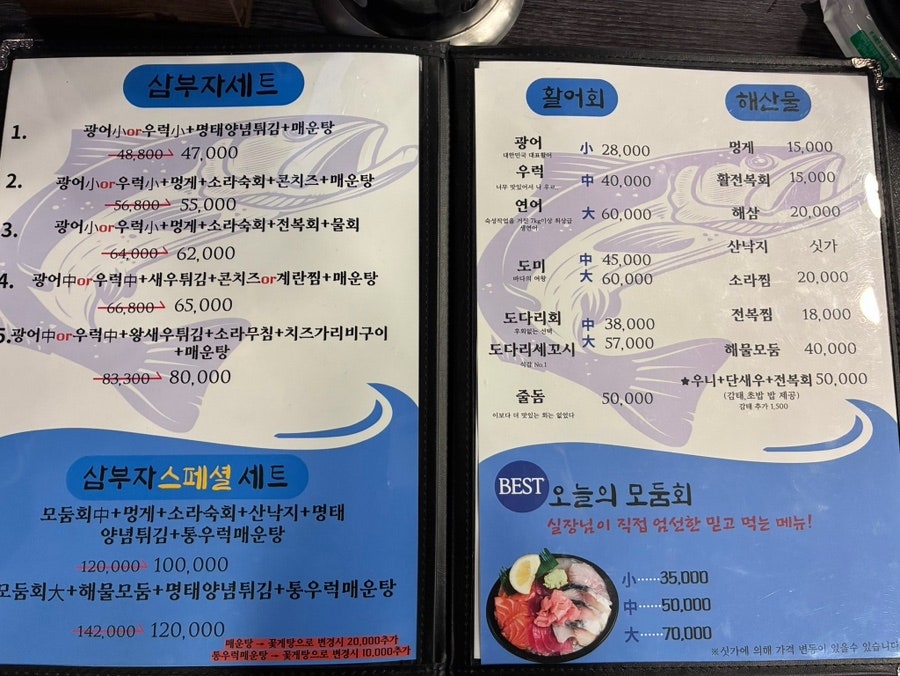 삼부자세트
1. 광어小or우럭小+명태양념튀김+매운탕
48,800 → 47,000
2. 광어小or우럭小+멍게+소라숙회+콘치즈+매운탕
56,800 → 55,000
3. 광어小or우럭小+멍게+소라숙회+전복회+물회
64,000 → 62,000
4. 광어中or우럭中+새우튀김+콘치즈or계란찜+매운탕
66,800 → 65,000
5.광어中or우럭中+왕새우튀김+소라무침+치즈가리비구이
+매운탕
83,300 → 80,000
삼부자스페셜세트
모둠회中+멍게+소라숙회+산낙지+명태
양념튀김+통우럭매운탕
120,000 → 100,000
모둠회大+해물모둠+명태양념튀김+통우럭매운탕
142,000 → 120,000
매운탕 → 꽃게탕으로 변경시 20,000추가
통우럭매운탕 → 꽃게탕으로 변경시 10,000추가
활어회
광어
대한민국 대표활어
우럭
나무 맛있어서 나 우르..
연어
숙성작업을 거친 7kg이상 최상급
생연어
小 28,000
中 40,000
大 60,000
도미
바다의 여왕
中 45,000
大 60,000
도다리회
후회없는 선택
도다리세꼬시
식감 No.1
中 38,000
大 57,000
줄돔 50,000
이보다 더 맛있는 회는 없었다
해산물
멍게 15,000
활전복회 15,000
해삼 20,000
산낙지 싯가
소라찜 20,000
전복찜 18,000
해물모둠 40,000
★우니+단새우+전복회 50,000
(감태,초밥 밥 제공)
감태 추가 1,500
BEST 오늘의 모둠회
실장님이 직접 엄선한 믿고 먹는 메뉴!
小······35,000
中······50,000
大······70,000
※싯가에 의해 가격 변동이 있을수 있습니다